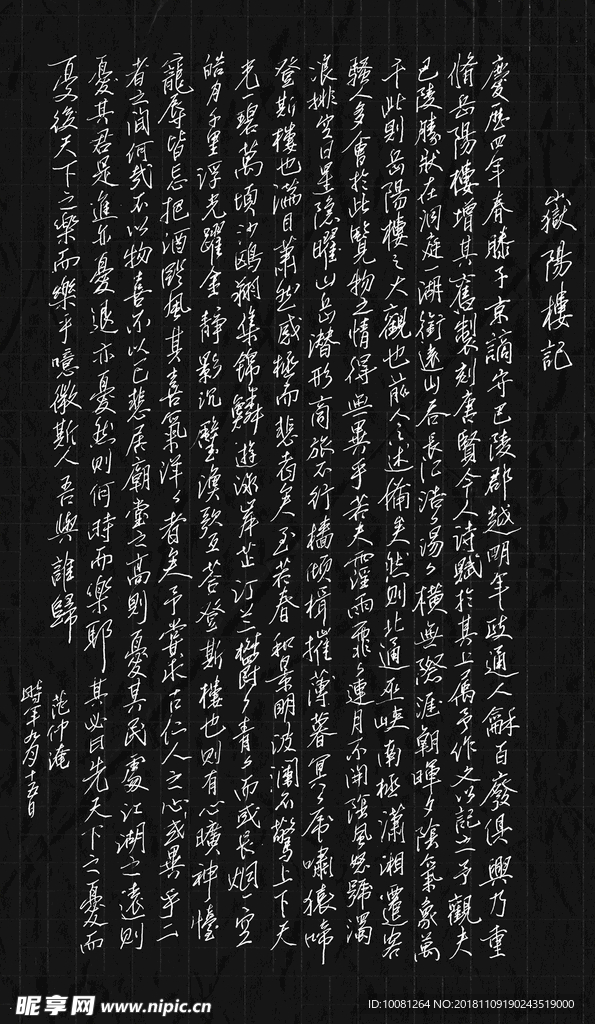 嶽陽樓記
慶歷四年春滕子京謫守巴陵郡越明年政通人龢百廢俱興乃重
脩岳陽樓增其舊製刻唐賢今人詩賦於其上屬予作文以記之予觀夫
巴陵勝狀在洞庭一湖銜遠山吞長江浩浩湯湯橫無際涯朝暉夕陰氣象萬
千此則岳陽樓之大觀也前人之述備矣然則北通巫峽南極瀟湘遷客
騷人多會於此覽物之情得無異乎若夫霪雨霏霏連月不開陰風怒號濁
浪排空日星隱曜山岳潛形商旅不行檣傾楫摧薄暮冥冥虎嘯猿啼
登斯樓也滿目蕭然感極而悲者矣至若春和景明波瀾不驚上下天
光碧萬頃沙鷗翔集錦鱗遊泳岸芷汀蘭鬱鬱青青而或長烟一空
皓月千里浮光躍金靜影沉璧漁歌互答登斯樓也則有心曠神怡
寵辱皆忘把酒臨風其喜氣洋洋者矣予嘗求古仁人之心或異乎二
者之間何哉不以物喜不以己悲居廟堂之高則憂其民處江湖之遠則
憂其君是進亦憂退亦憂然則何時而樂耶其必曰先天下之憂而
憂後天下之樂而樂乎噫微斯人吾與誰歸
范仲淹
時六年九月十五日
昵享网 www.nipic.cn
ID:10081264 NO:20181109190243519000